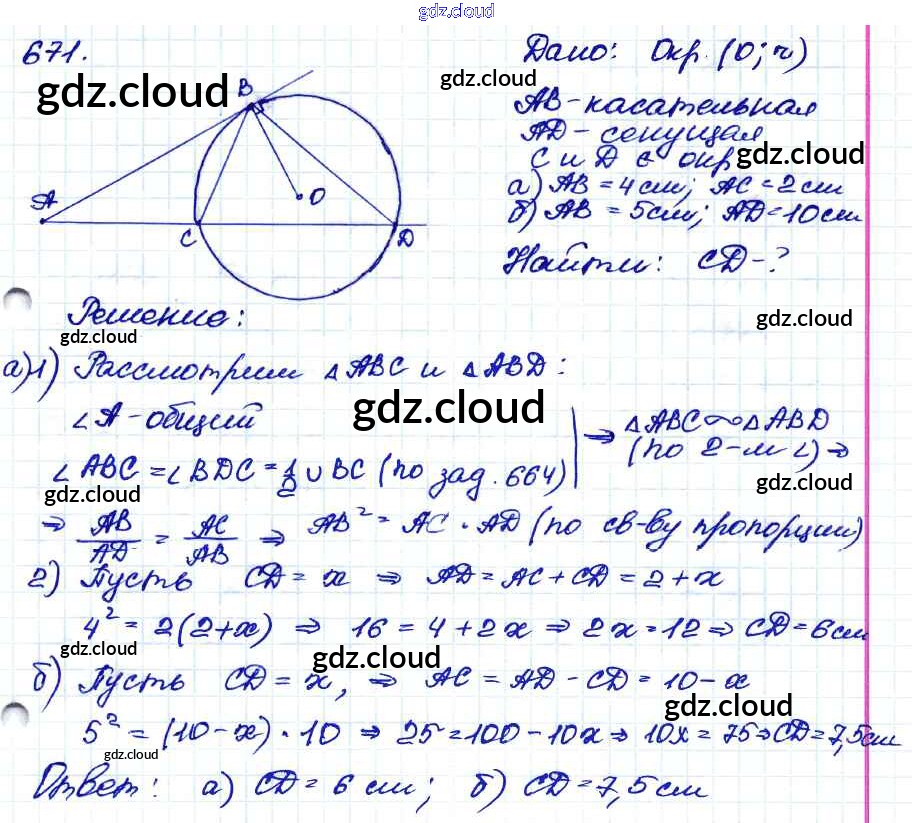 gdz.cloud
671.
Дано: Окр. (O; r)
gdz.cloud
gdz.cloud
AB - касательная
AD - секущая
C и D є окр
gdz.cloud
а) AB = 4 см; AC = 2 см
б) AB = 5 см; AD = 10 см
Найти: CD - ?
B
A
O
C
D
Решение:
gdz.cloud
gdz.cloud
а) 1) Рассмотрим △ABC и △ABD:
∠A - общий
gdz.cloud
∠ABC = ∠BDC = 1/2 ∪BC (по зад. 664)
⇒ △ABC ∾ △ABD
(по 2-м ∠) ⇒
gdz.cloud
gdz.cloud
⇒ AB/AD = AC/AB ⇒ AB² = AC · AD (по св-ву пропорции)
2) Пусть CD = x ⇒ AD = AC + CD = 2 + x
4² = 2(2+x) ⇒ 16 = 4 + 2x ⇒ 2x = 12 ⇒ CD = 6 см
gdz.cloud
б) Пусть CD = x, ⇒ AC = AD - CD = 10 - x
gdz.cloud
5² = (10 - x) · 10 ⇒ 25 = 100 - 10x ⇒ 10x = 75 ⇒ CD = 7,5 см
gdz.cloud
Ответ: а) CD = 6 см; б) CD = 7,5 см